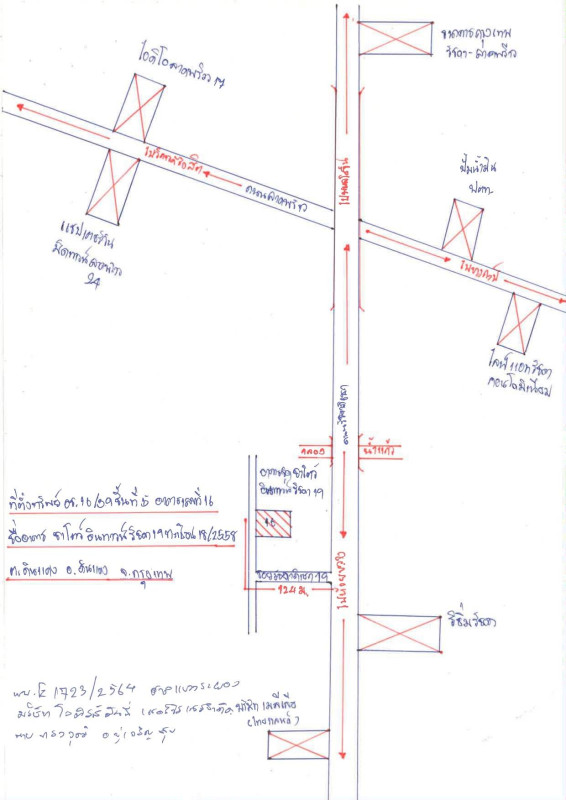 ธนาคารกรุงเทพ
รัชดา-ลาดพร้าว
ไอดีโอลาดพร้าว 17
ไปห้าแยก
ถนนลาดพร้าว
แชปเตอร์วัน
มิดทาวน์ลาดพร้าว
24
ปั้มน้ำมัน
ปตท.
ไลฟ์ แอท รัชดา
คอนโดมิเนียม
ถนนรัชดาภิเษก
คลอง
น้ำแก้ว
อาคารชุด ชาโตว์
อินทาวน์ รัชดา 19
16
ที่ตั้งทรัพย์ อช.16/59 ชั้นที่ 5 อาคารเลขที่ 16
ชื่ออาคาร ชาโตว์ อินทาวน์ รัชดา 19 ทะเบียน 18/2558
ต.ดินแดง อ.ดินแดง จ.กรุงเทพ
ซอยรัชดาภิเษก 19
124 ม.
ไปห้วยขวาง
ผบ.E 1723/2564
บริษัท
(ไทยแลนด์)
นาย